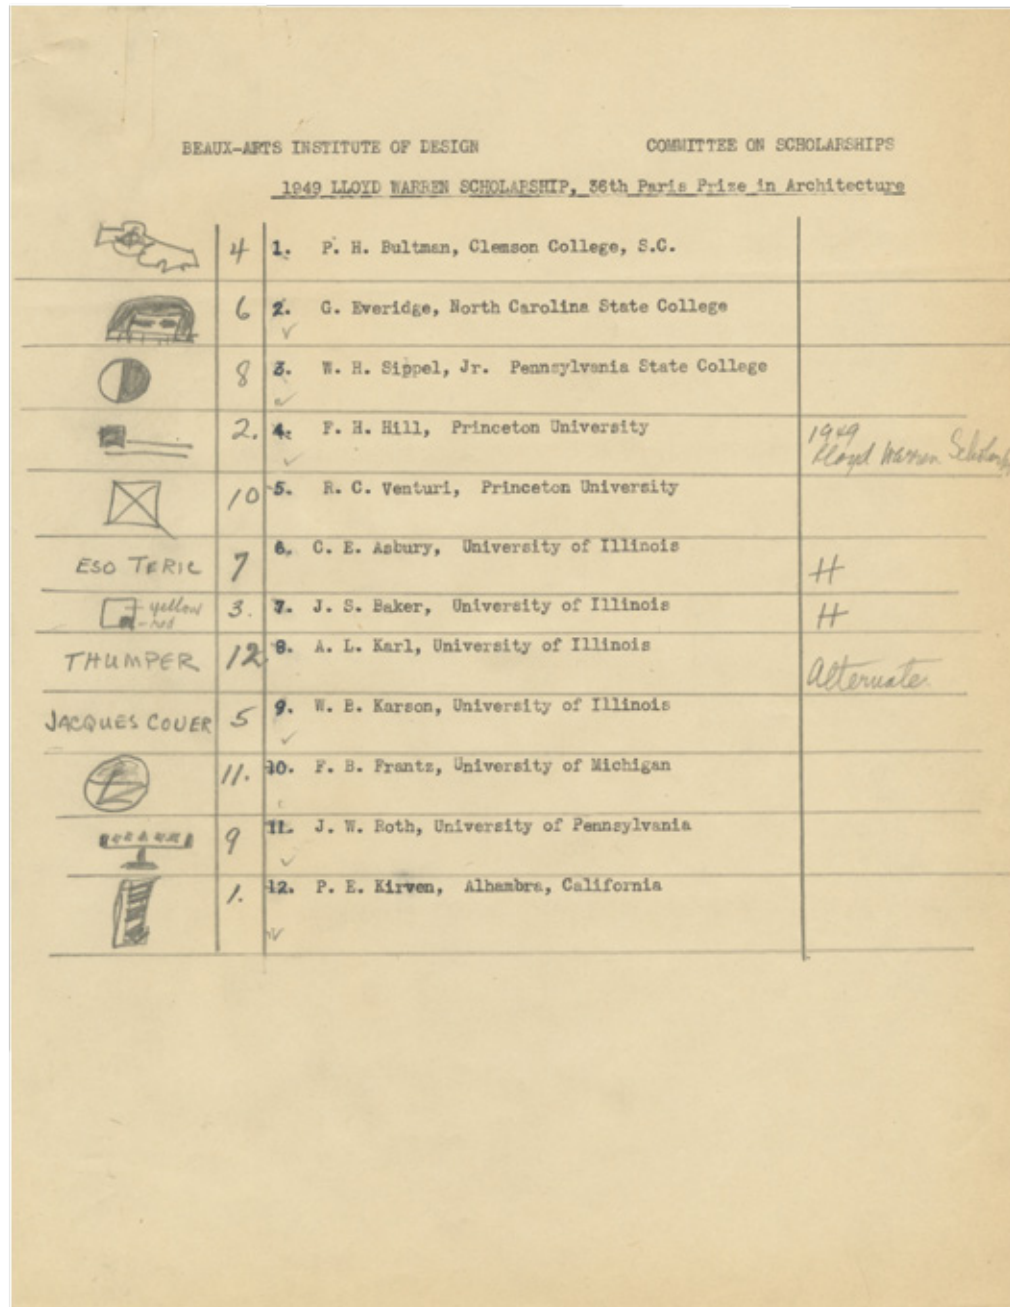 BEAUX-ARTS INSTITUTE OF DESIGN COMMITTEE ON SCHOLARSHIPS
1949 LLOYD WARREN SCHOLARSHIP, 36th Paris Prize in Architecture
4 1. P. H. Bultman, Clemson College, S.C.
6 2. G. Everidge, North Carolina State College
8 3. W. H. Sippel, Jr. Pennsylvania State College
2. 4. F. H. Hill, Princeton University 1949
Lloyd Warren Scholarship
10 5. R. C. Venturi, Princeton University
ESO TERIC 7 6. C. E. Asbury, University of Illinois H
yellow 3. 7. J. S. Baker, University of Illinois H
-red
THUMPER 12 8. A. L. Karl, University of Illinois Alternate.
JACQUES COUER 5 9. W. E. Karson, University of Illinois
11. 10. F. B. Frantz, University of Michigan
9 11. J. W. Roth, University of Pennsylvania
1. 12. P. E. Kirven, Alhambra, California